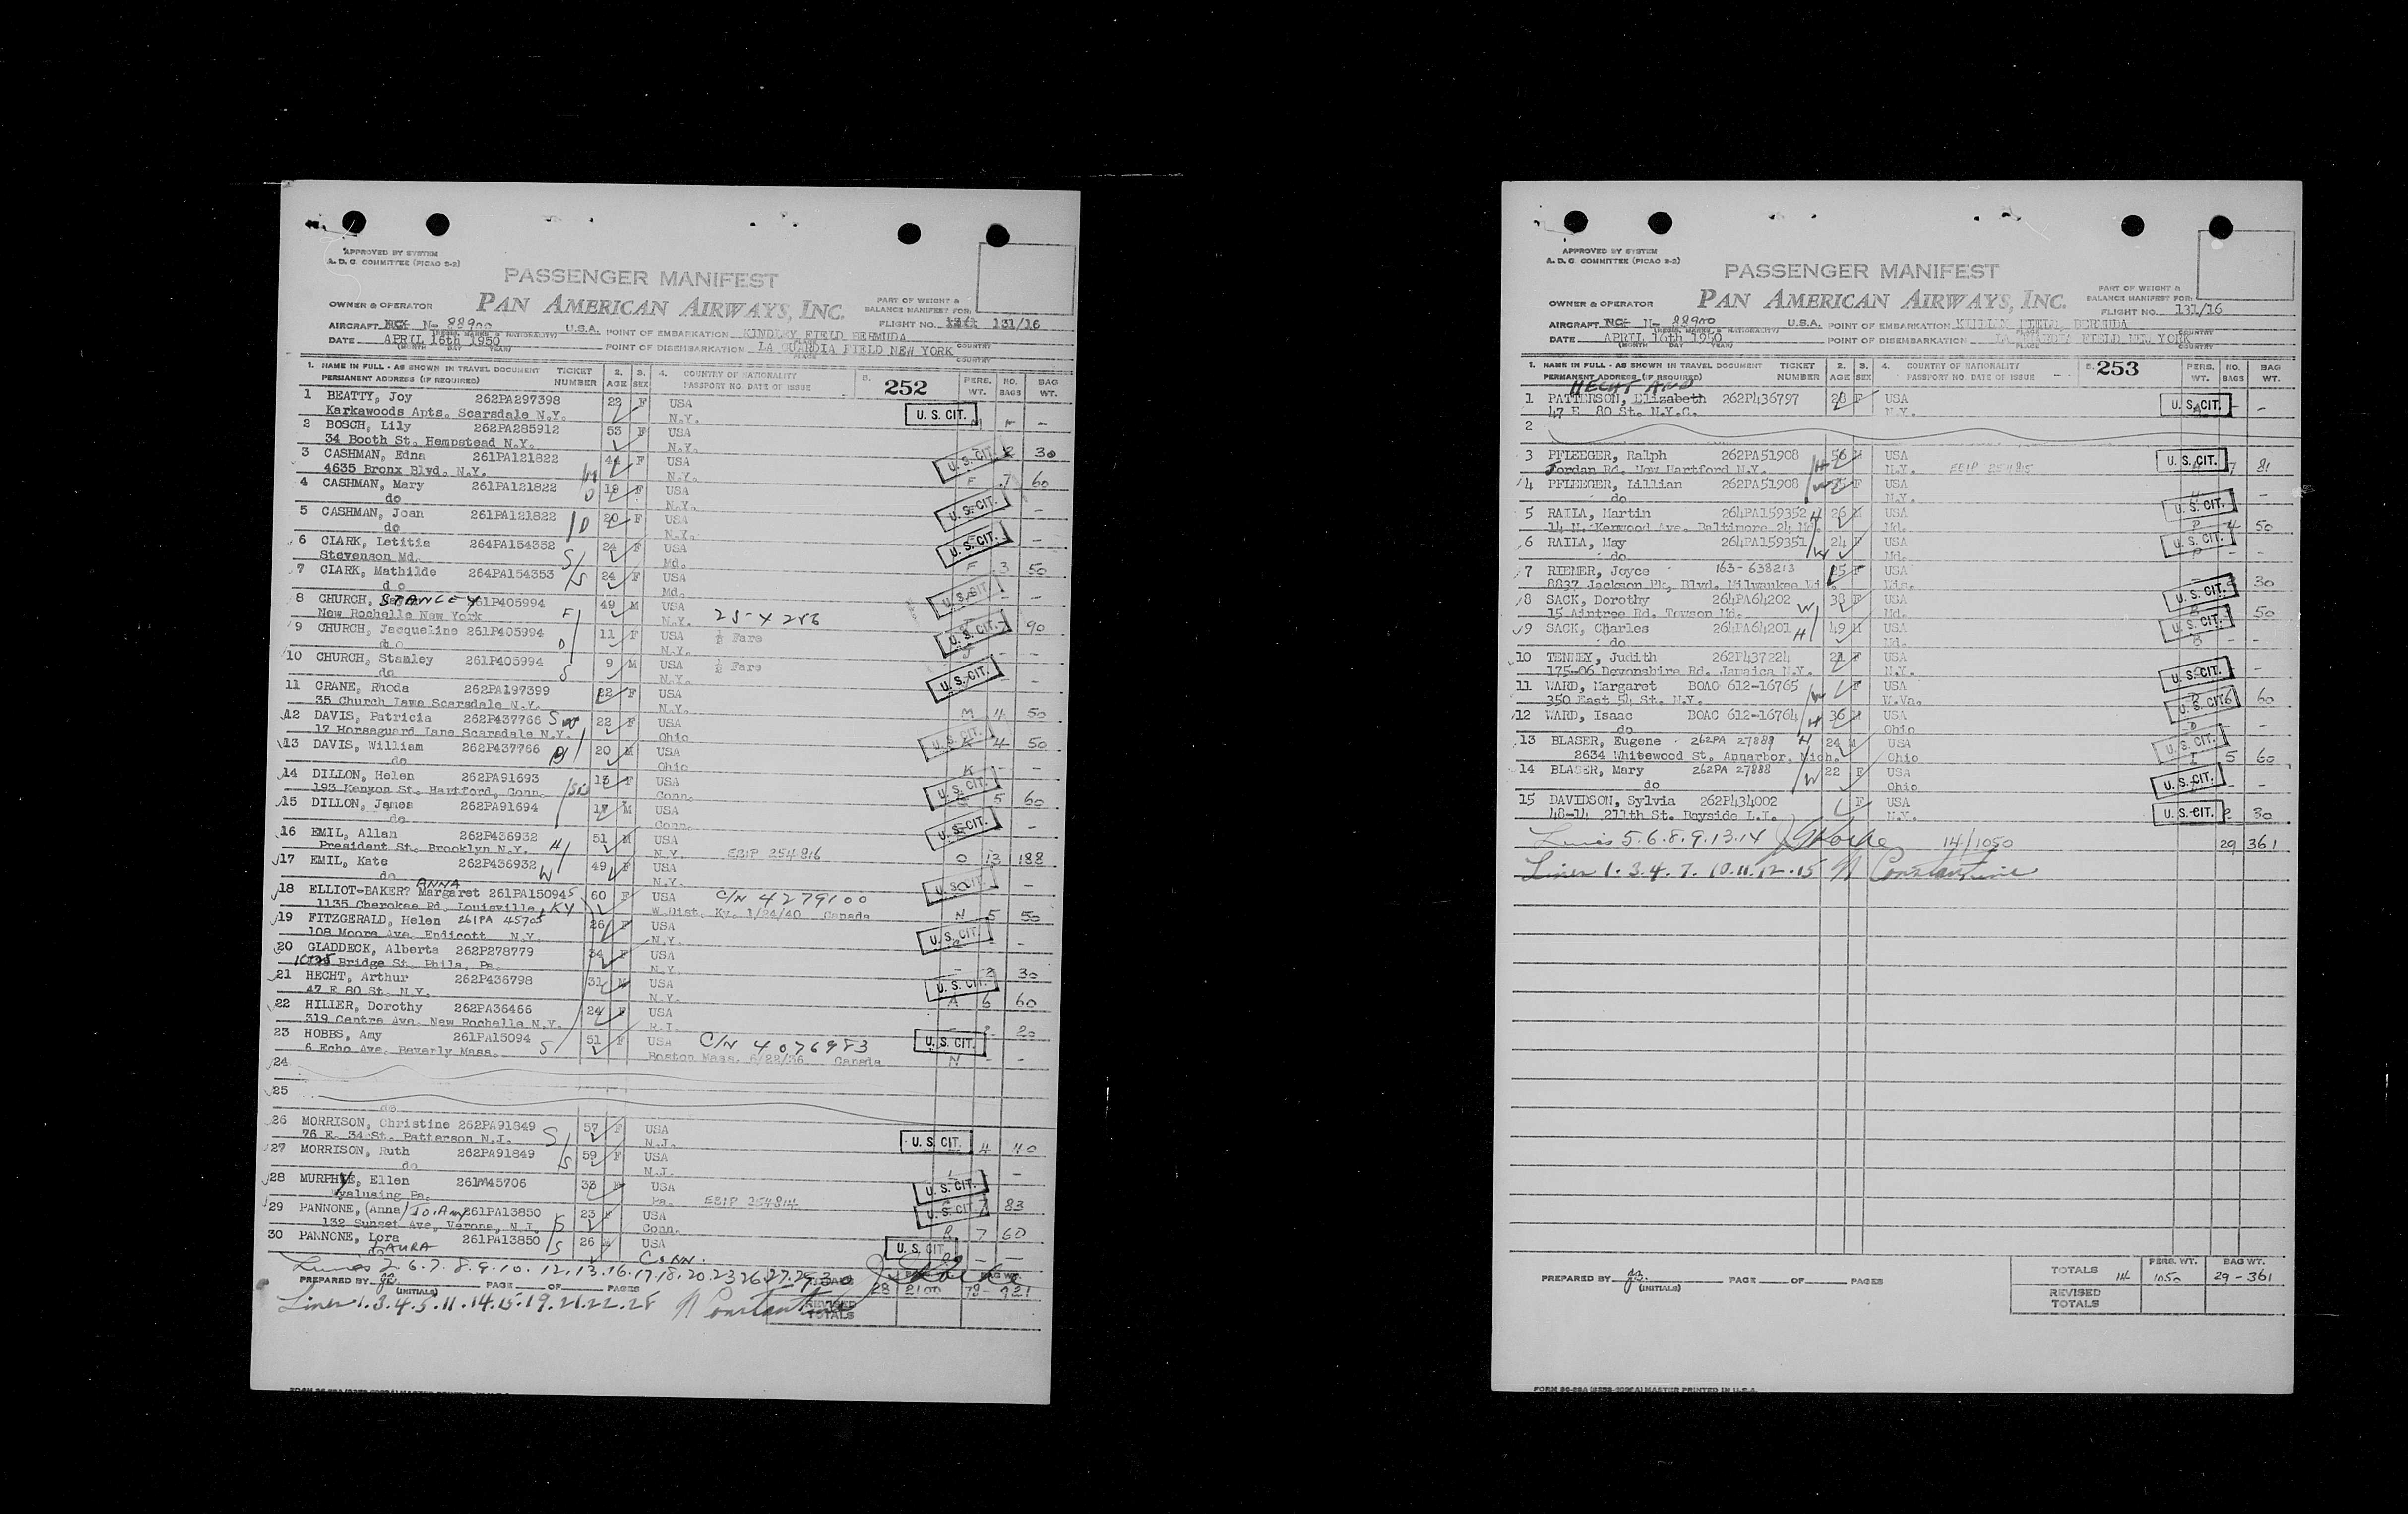 APPROVED BY SYSTEM
A. D. C. COMMITTEE (PICAO S-2)
PASSENGER MANIFEST
OWNER & OPERATOR PAN AMERICAN AIRWAYS, INC.
PART OF WEIGHT & BALANCE MANIFEST FOR:
AIRCRAFT N- 88900 U.S.A. POINT OF EMBARKATION KINDLEY FIELD BERMUDA FLIGHT NO. 131/16
(REGIS. MARKS & NATIONALITY) PLACE COUNTRY
DATE APRIL 16th 1950 POINT OF DISEMBARKATION LA GUARDIA FIELD NEW YORK
(MONTH DAY YEAR) PLACE COUNTRY
1. NAME IN FULL - AS SHOWN IN TRAVEL DOCUMENT TICKET 2. 3. 4. COUNTRY OF NATIONALITY 5. 252 PERS. NO. BAG
PERMANENT ADDRESS (IF REQUIRED) NUMBER AGE SEX PASSPORT NO. DATE OF ISSUE WT. BAGS WT.
1 BEATTY, Joy 262PA297398 22 F USA
Karkawoods Apts. Scarsdale N.Y. N.Y. U. S. CIT.
2 BOSCH, Lily 262PA285912 53 F USA
34 Booth St. Hempstead N.Y. N.Y. U. S. CIT. 2 30
3 CASHMAN, Edna 261PA121822 44 F USA
4635 Bronx Blvd. N.Y. M N.Y. F 7 60
4 CASHMAN, Mary 261PA121822 D 19 F USA
do N.Y. U. S. CIT. -
5 CASHMAN, Joan 261PA121822 D 20 F USA
do N.Y. U. S. CIT. -
6 CLARK, Letitia 264PA154352 24 F USA
Stevenson Md. S Md. F 3 50
7 CLARK, Mathilde 264PA154353 S 24 F USA
do Md. U. S. CIT. -
8 CHURCH, STANLEY 261P405994 49 M USA 25-X 286
New Rochelle New York F N.Y. U. S. CIT. 7 90
9 CHURCH, Jacqueline 261P405994 11 F USA ½ Fare
do D N.Y. -
10 CHURCH, Stanley 261P405994 9 M USA ½ Fare
do S N.Y. U. S. CIT. -
11 CRANE, Rhoda 262PA197399 22 F USA
35 Church Lawe Scarsdale N.Y. N.Y. M 4 50
12 DAVIS, Patricia 262P437766 22 F USA
17 Horseguard Lane Scarsdale N.Y. Ohio U. S. CIT. 4 50
13 DAVIS, William 262P437766 B 20 M USA
do Ohio K -
14 DILLON, Helen 262PA91693 F USA
193 Kenyon St. Hartford, Conn. Sis Conn. U. S. CIT. 5 60
15 DILLON, James 262PA91694 M USA
do Conn. U. S. CIT. -
16 EMIL, Allan 262P436932 51 M USA
President St. Brooklyn N.Y. H N.Y. EBIP 254816 O 13 188
17 EMIL, Kate 262P436932 49 F USA
do W N.Y. U. S. CIT. -
ANNA
18 ELLIOT-BAKER? Margaret 261PA15094 S 60 F USA C/N 4279100
1135 Cherokee Rd. Louisville, KY W.Dist. Ky. 1/24/40 Canada N 5 50
19 FITZGERALD, Helen 261PA 45705 26 F USA
108 Moore Ave. Endicott N.Y. N.Y. U. S. CIT. -
20 GLADDECK, Alberta 262P278779 34 F USA
Bridge St. Phila. Pa. N.Y. - 2 30
21 HECHT, Arthur 262P436798 31 M USA
47 E 80 St. N.Y. N.Y. U. S. CIT. A 6 60
22 HILLER, Dorothy 262PA36466 24 F USA
319 Centre Ave. New Rochelle N.Y. R.I. - 2 20
23 HOBBS, Amy 261PA15094 51 F USA C/N 4076983
6 Echo Ave. Beverly Mass. S Boston Mass. 6/22/36 Canada U. S. CIT. N - -
24
25
do
26 MORRISON, Christine 262PA91849 57 F USA
76 E. 34 St. Patterson N.J. S N.J. U. S. CIT. 4 40
27 MORRISON, Ruth 262PA91849 59 F USA
do S N.J. -
28 MURPHY, Ellen 261M45706 33 USA
Wyalusing Pa. Pa. EBIP 254814 U. S. CIT. 7 83
29 PANNONE, (Anna) 261PA13850 23 F USA
132 Sunset Ave. Verona, N.J. S Conn. U. S. CIT. R 7 60
30 PANNONE, Lora 261PA13850 S 26 USA
do LAURA CONN. U. S. CIT. - -
Lines 2.6.7.8.9.10.12.13.16.17.18.20.23 26.27.29.30
PREPARED BY (INITIALS) PAGE OF PAGES 28 2100
Lines 1.3.4.5.11.14.15.19.21.22.28 N Constantine
REVISED TOTALS
APPROVED BY SYSTEM
A. D. C. COMMITTEE (PICAO S-2)
PASSENGER MANIFEST
OWNER & OPERATOR PAN AMERICAN AIRWAYS, INC.
PART OF WEIGHT & BALANCE MANIFEST FOR:
AIRCRAFT N- 88900 U.S.A. POINT OF EMBARKATION KINDLEY FIELD, BERMUDA FLIGHT NO. 131/16
(REGIS. MARKS & NATIONALITY) PLACE COUNTRY
DATE APRIL 16th 1950 POINT OF DISEMBARKATION LA GUARDIA FIELD NEW YORK
(MONTH DAY YEAR) PLACE COUNTRY
1. NAME IN FULL - AS SHOWN IN TRAVEL DOCUMENT TICKET 2. 3. 4. COUNTRY OF NATIONALITY 5. 253 PERS. NO. BAG
PERMANENT ADDRESS (IF REQUIRED) NUMBER AGE SEX PASSPORT NO. DATE OF ISSUE WT. BAGS WT.
HECHT AND
1 PATTERSON, Elizabeth 262P436797 28 F USA
47 E 80 St. N.Y.C. N.Y. U. S. CIT. - -
2
3 PFLEEGER, Ralph 262PA51908 H 56 USA
Jordan Rd. New Hartford N.Y. N.Y. EBIP 254815 U. S. CIT. 7 81
4 PFLEEGER, Lillian 262PA51908 W F USA
do N.Y. -
5 RAILA, Martin 264PA159352 H 26 M USA
14 N. Kenwood Ave. Baltimore 24 Md. Md. U. S. CIT. P 4 50
6 RAILA, May 264PA159351 W 24 F USA
do Md. U. S. CIT. P - -
7 RIEMER, Joyce 163-638213 25 F USA
8837 Jackson Pk. Blvd. Milwaukee Wi Wis. 30
8 SACK, Dorothy 264PA64202 W 38 F USA
15 Aintree Rd. Towson Md. Md. U. S. CIT. 50
9 SACK, Charles 264PA64201 H 49 M USA
do Md. U. S. CIT. - -
10 TENNEY, Judith 262P437224 21 F USA
175-06 Devonshire Rd. Jamaica N.Y. N.Y. U. S. CIT. -
11 WARD, Margaret BOAC 612-16765 W F USA
350 East 54 St. N.Y. W.Va. U. S. CIT. 6 60
12 WARD, Isaac BOAC 612-16764 H 36 M USA
do Ohio - -
13 BLASER, Eugene 262PA 27889 H 24 M USA
2634 Whitewood St. Annarbor. Mich. Ohio U. S. CIT. 5 60
14 BLASER, Mary 262PA 27888 W 22 F USA
do Ohio U. S. CIT. - -
15 DAVIDSON, Sylvia 262P434002 F USA
48-14 211th St. Bayside L.I. N.Y. U. S. CIT. 2 30
Lines 5.6.8.9.13.14 14/1050 29 361
Lines 1.3.4.7.10.11.12.15 N Constantine
PREPARED BY (INITIALS) PAGE OF PAGES
TOTALS 14 PERS. WT. 1050 BAG WT. 29-361
REVISED TOTALS